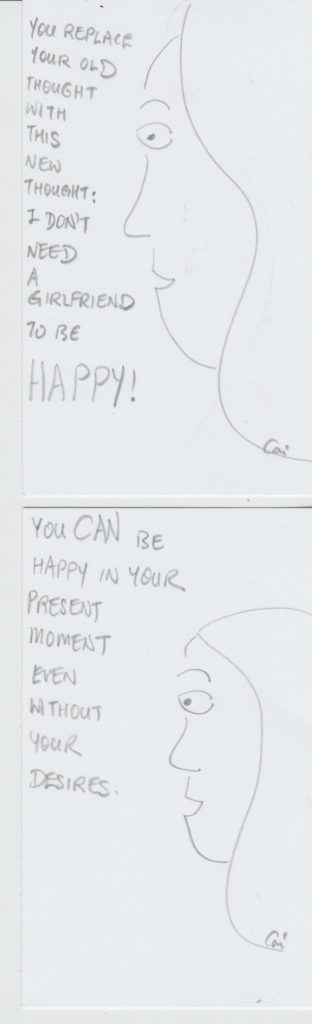 YOU REPLACE
YOUR OLD
THOUGHT
WITH
THIS
NEW
THOUGHT:
I DON'T
NEED
A
GIRLFRIEND
TO BE
HAPPY!
Cai
YOU CAN BE
HAPPY IN YOUR
PRESENT
MOMENT
EVEN
WITHOUT
YOUR
DESIRES.
Cai